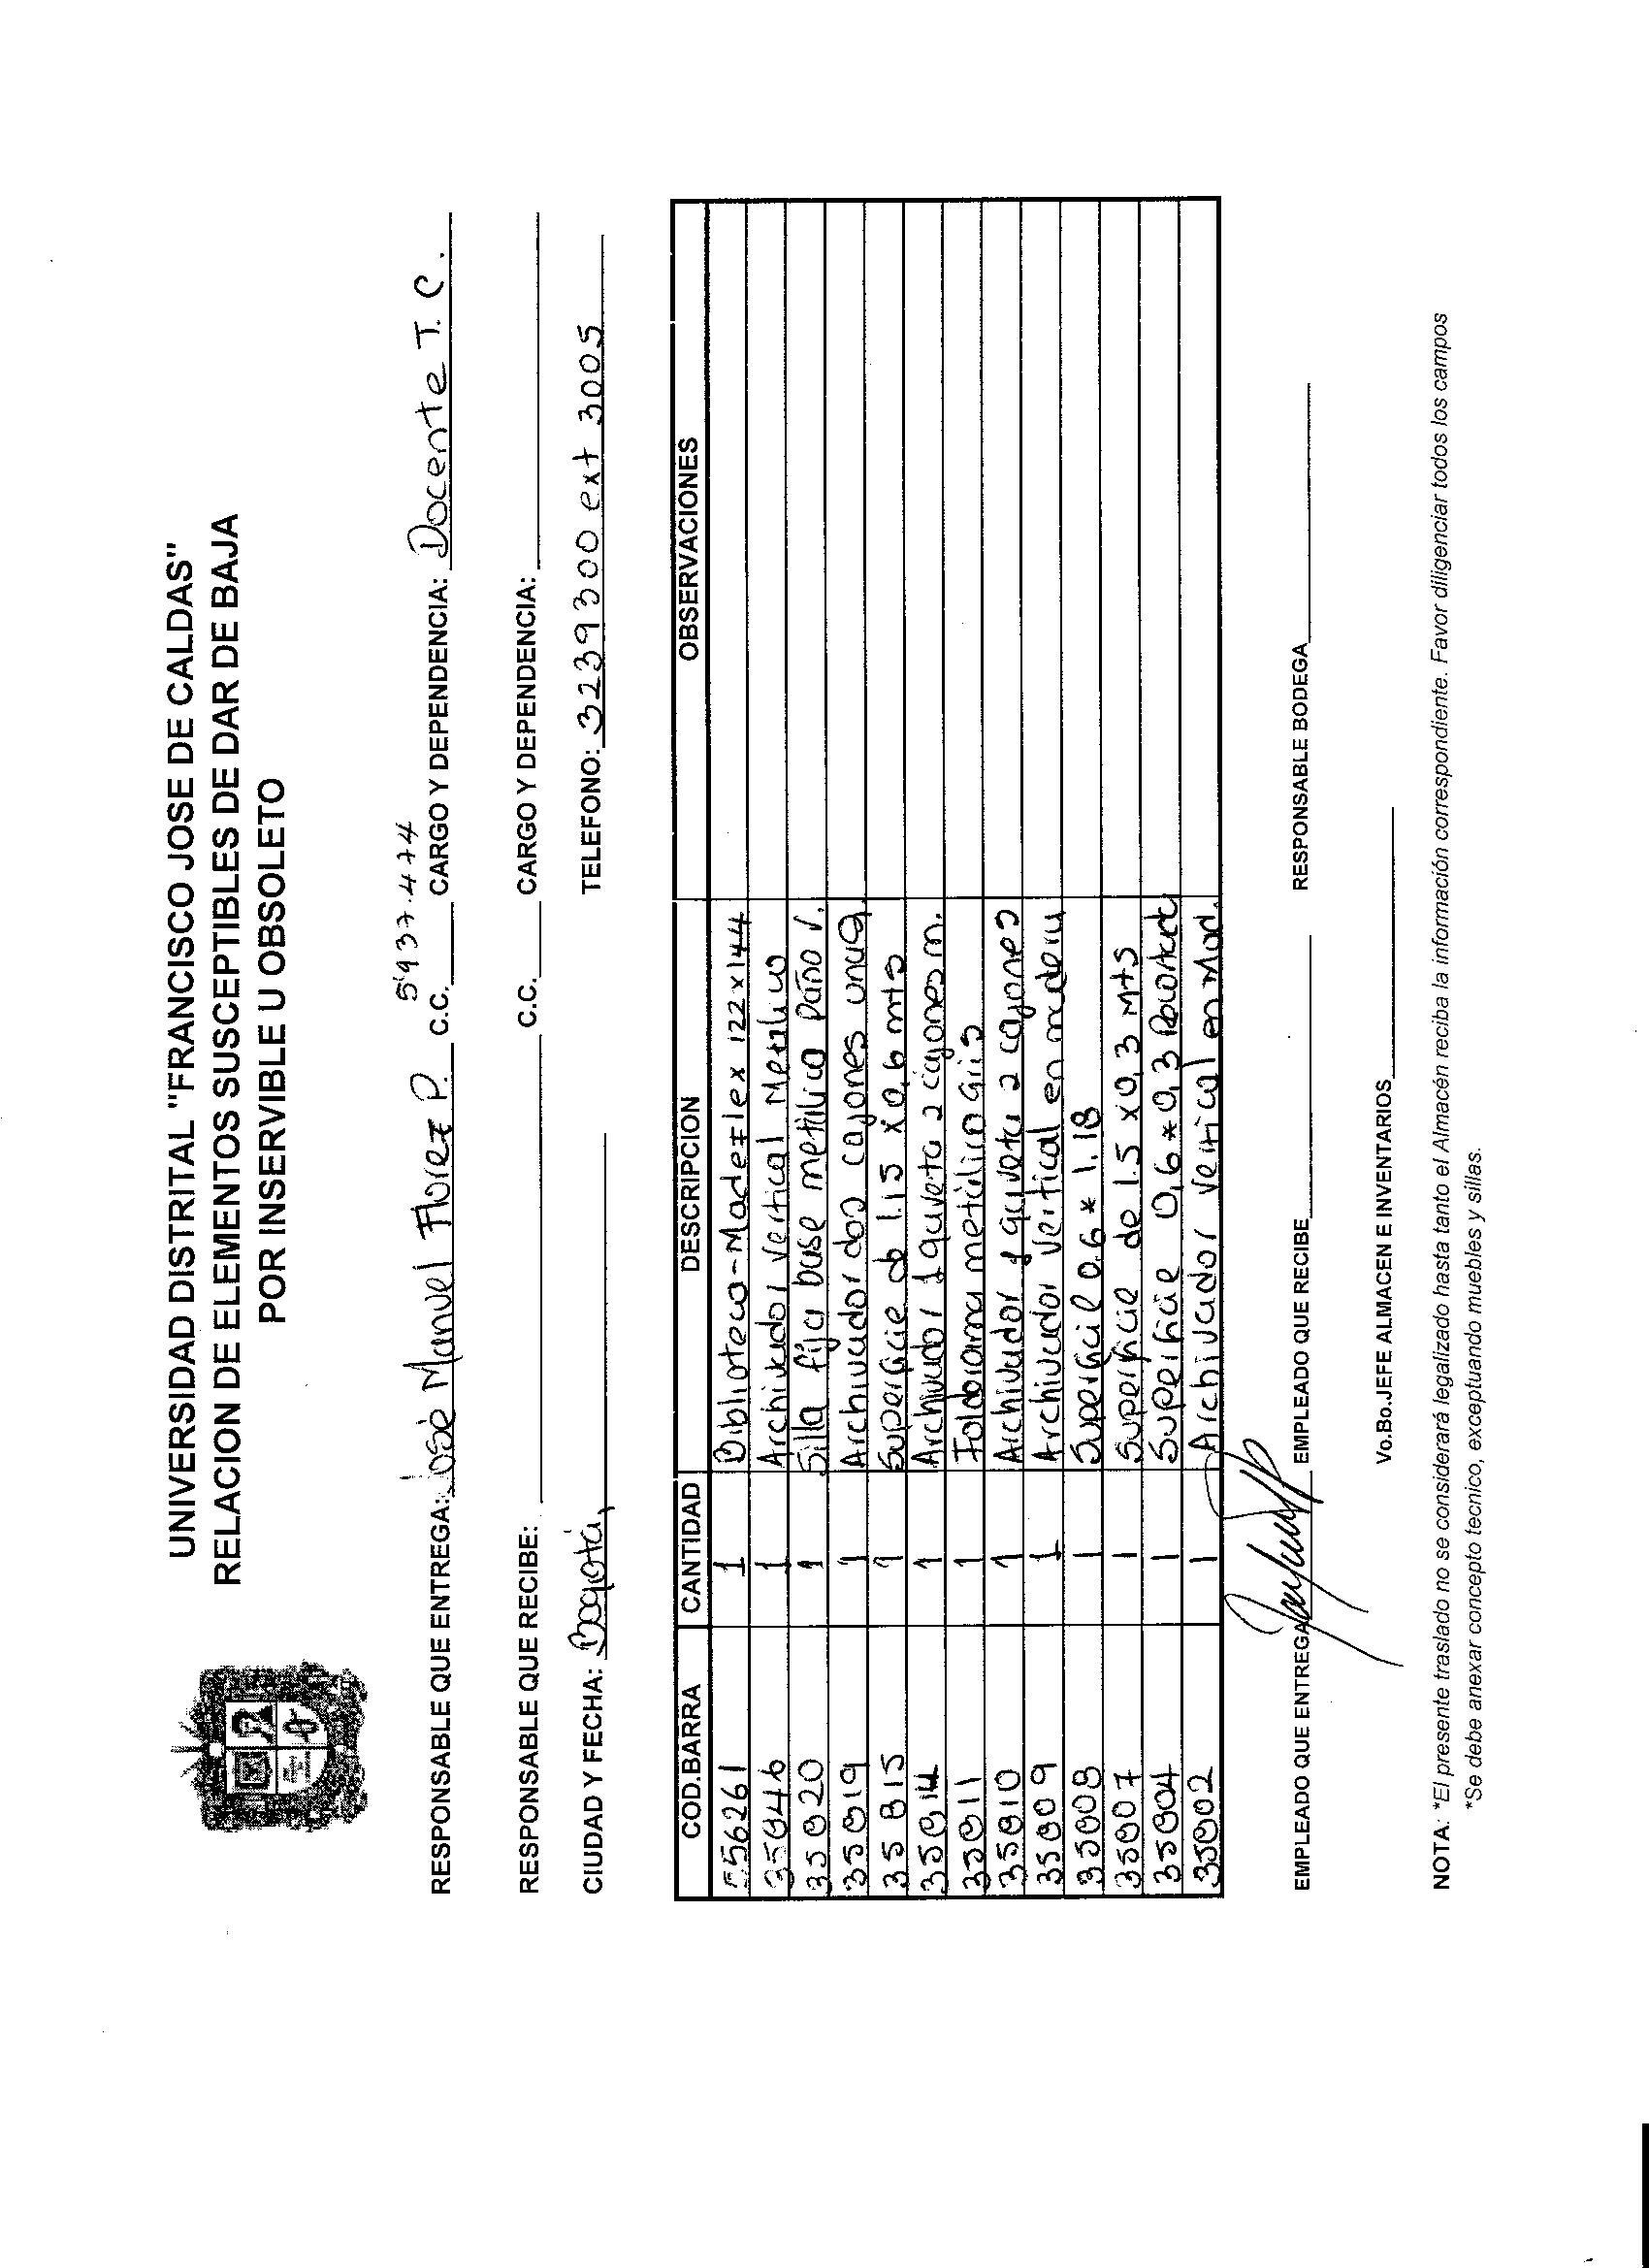 UNIVERSIDAD DISTRITAL "FRANCISCO JOSE DE CALDAS"
RELACION DE ELEMENTOS SUSCEPTIBLES DE DAR DE BAJA
POR INSERVIBLE U OBSOLETO
RESPONSABLE QUE ENTREGA: José Manuel Florez P. C.C. 5'937.474 CARGO Y DEPENDENCIA: Docente T. C.
RESPONSABLE QUE RECIBE: C.C. CARGO Y DEPENDENCIA:
CIUDAD Y FECHA: Bogotá, TELEFONO: 3239300 ext 3005
COD.BARRA CANTIDAD DESCRIPCION OBSERVACIONES
556261 1 Biblioteca-Madeflex 122x144
35846 1 Archivador Vertical Metalico
35820 1 Silla fija base metálica paño V.
35819 1 Archivador dos cajones
35815 1 Superficie de 1.15 x 0,6 mts
35814 1 Archivador 1 gaveta 2 cajones m.
35811 1 metálico Gris
35810 1 Archivador 1 gaveta 2 cajones
35809 1 Archivador Vertical en madera
35808 1 0.6 * 1.18
35807 1 Superficie de 1.5 x 0,3 Mts
35804 1 Superficie 0,6 * 0,3
35802 1 Archivador Vertical en Mad.
EMPLEADO QUE ENTREGA EMPLEADO QUE RECIBE RESPONSABLE BODEGA
Vo.Bo.JEFE ALMACEN E INVENTARIOS
NOTA: *El presente traslado no se considerará legalizado hasta tanto el Almacén reciba la información correspondiente. Favor diligenciar todos los campos
*Se debe anexar concepto tecnico, exceptuando muebles y sillas.